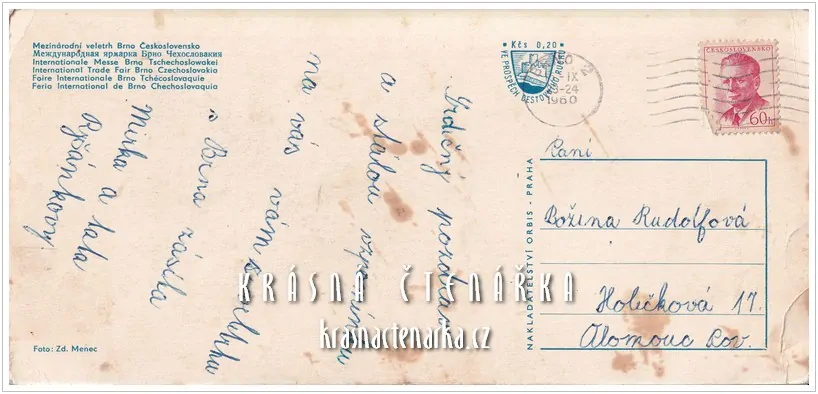 Mezinárodní veletrh Brno Československo
Международная ярмарка Брно Чехословакия
Internationale Messe Brno Tschechoslowakei
International Trade Fair Brno Czechoslovakia
Foire Internationale de Brno Tchécoslovaquie
Feria International de Brno Checoslovaquia
Kčs 0,20
VE PROSPĚCH CESTOVNÍHO RUCHU
IX
-24
1960
ČESKOSLOVENSKO
60h
Srdečný pozdrav
a stálou vzpomínku
na vás vám
z Brna zasílá
Mirka a táta
NAKLADATELSTVÍ ORBIS - PRAHA
Paní
Božena Rudolfová
Holečkova 17.
Olomouc Lov.
KRÁSNÁ ČTENÁŘKA
krasnactenarka.cz
Foto: Zd. Menec